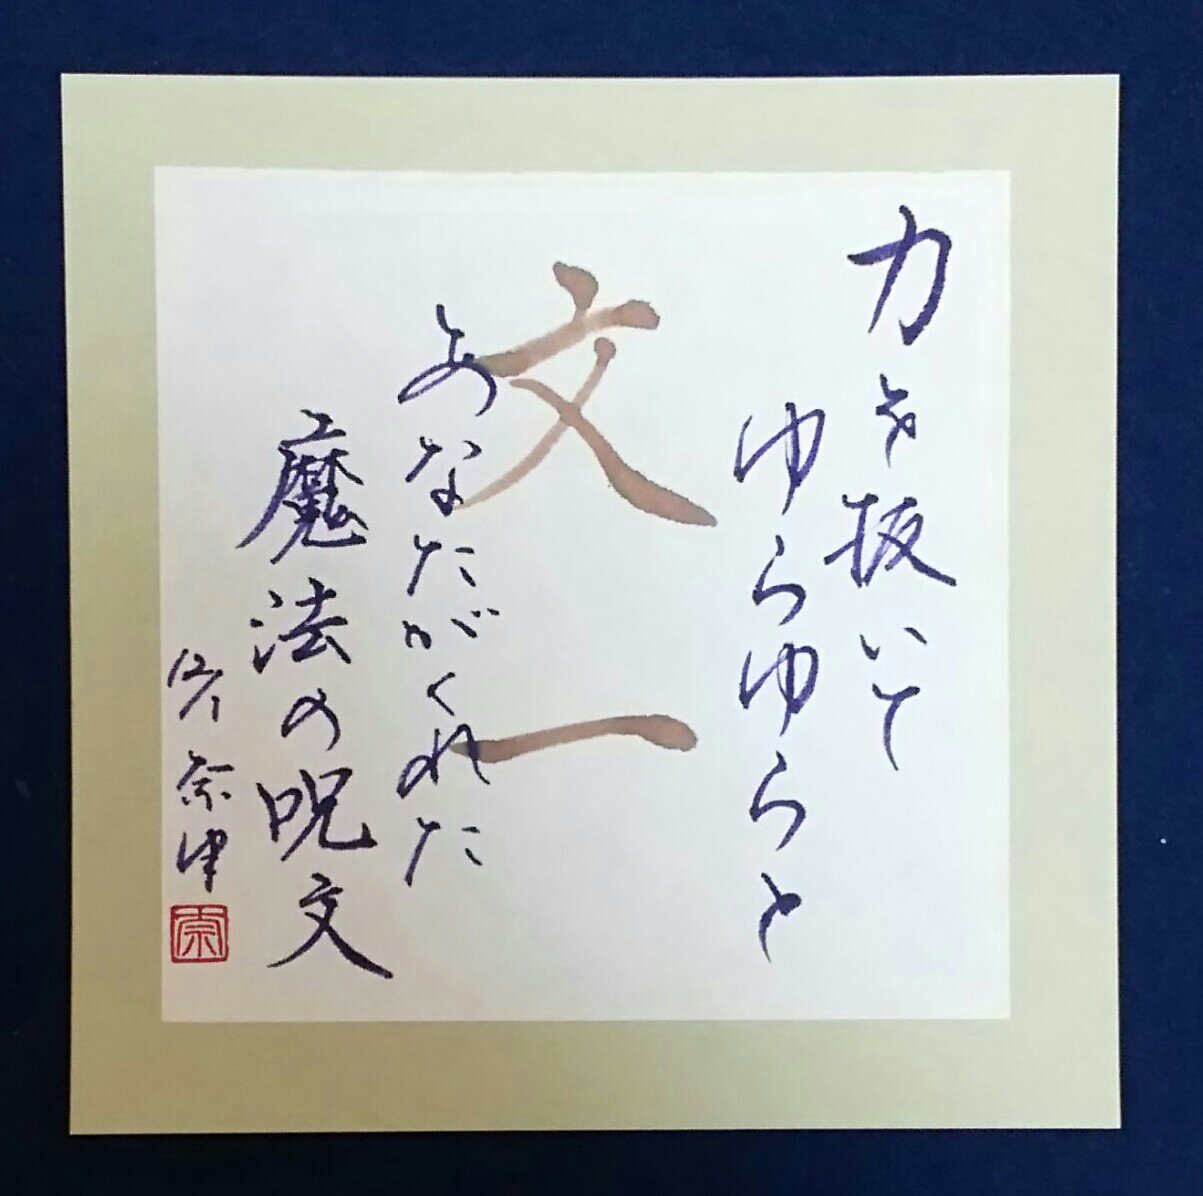 力を抜いて
ゆらゆらと
文一
あなたがくれた
魔法の呪文
奈津